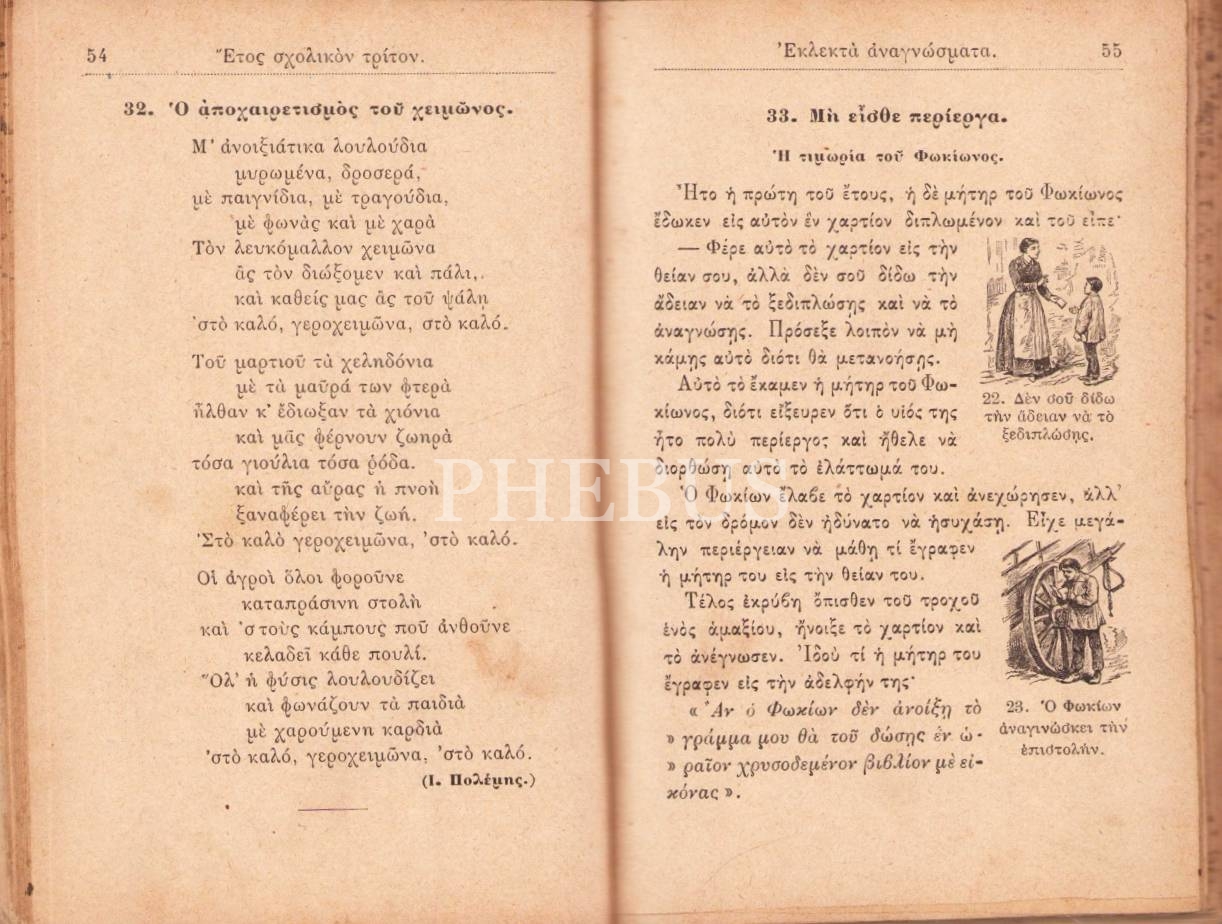 54
Ἔτος σχολικὸν τρίτον.
32. Ὁ ἀποχαιρετισμὸς τοῦ χειμῶνος.
Μ' ἀνοιξιάτικα λουλούδια
μυρωμένα, δροσερά,
μὲ παιγνίδια, μὲ τραγούδια,
μὲ φωνὰς καὶ μὲ χαρὰ
Τὸν λευκόμαλλον χειμῶνα
ἂς τὸν διώξομεν καὶ πάλι,
καὶ καθείς μας ἂς τοῦ ψάλῃ
'στὸ καλό, γεροχειμῶνα, στὸ καλό.
Τοῦ μαρτιοῦ τὰ χεληδόνια
μὲ τὰ μαῦρά των φτερὰ
ἦλθαν κ' ἔδιωξαν τὰ χιόνια
καὶ μᾶς φέρνουν ζωηρὰ
τόσα γιούλια τόσα ῥόδα.
καὶ τῆς αὔρας ἡ πνοὴ
ξαναφέρει τὴν ζωή.
Ὲτὸ καλὸ γεροχειμῶνα, 'στὸ καλό.
Οἱ ἀγροὶ ὅλοι φοροῦνε
καταπράσινη στολὴ
καὶ 'στοὺς κάμπους ποῦ ἀνθοῦνε
κελαδεῖ κάθε πουλί.
Ὅλ' ἡ φύσις λουλουδίζει
καὶ φωνάζουν τὰ παιδιὰ
μὲ χαρούμενη καρδιὰ
'στὸ καλό, γεροχειμῶνα, 'στὸ καλό.
(Ι. Πολέμης.)
Ἐκλεκτὰ ἀναγνώσματα.
55
33. Μὴ εἶσθε περίεργα.
Ἡ τιμωρία τοῦ Φωκίωνος.
Ἦτο ἡ πρώτη τοῦ ἔτους, ἡ δὲ μήτηρ τοῦ Φωκίωνος
ἔδωκεν εἰς αὐτὸν ἓν χαρτίον διπλωμένον καὶ τοῦ εἶπε·
— Φέρε αὐτὸ τὸ χαρτίον εἰς τὴν
θείαν σου, ἀλλὰ δὲν σοῦ δίδω τὴν
ἄδειαν νὰ τὸ ξεδιπλώσῃς καὶ νὰ τὸ
ἀναγνώσῃς. Πρόσεξε λοιπὸν νὰ μὴ
κάμῃς αὐτὸ διότι θὰ μετανοήσῃς.
Αὐτὸ τὸ ἔκαμεν ἡ μήτηρ τοῦ Φω-
κίωνος, διότι εἴξευρεν ὅτι ὁ υἱός της
ἦτο πολὺ περίεργος καὶ ἤθελε νὰ
διορθώσῃ αὐτὸ τὸ ἐλάττωμά του.
22. Δὲν σοῦ δίδω
τὴν ἄδειαν νὰ τὸ
ξεδιπλώσῃς.
Ὁ Φωκίων ἔλαβε τὸ χαρτίον καὶ ἀνεχώρησεν, ἀλλ'
εἰς τὸν δρόμον δὲν ἠδύνατο νὰ ἡσυχάσῃ. Εἶχε μεγά-
λην περιέργειαν νὰ μάθῃ τί ἔγραφεν
ἡ μήτηρ του εἰς τὴν θείαν του.
Τέλος ἐκρύβη ὄπισθεν τοῦ τροχοῦ
ἑνὸς ἁμαξίου, ἤνοιξε τὸ χαρτίον καὶ
τὸ ἀνέγνωσεν. Ἰδοὺ τί ἡ μήτηρ του
ἔγραφεν εἰς τὴν ἀδελφήν της·
« Ἂν ὁ Φωκίων δὲν ἀνοίξῃ τὸ
» γράμμα μου θὰ τοῦ δώσῃς ἓν ὡ-
» ραῖον χρυσοδεμένον βιβλίον μὲ εἰ-
κόνας ».
23. Ὁ Φωκίων
ἀναγινώσκει τὴν
ἐπιστολήν.
PHEBUS